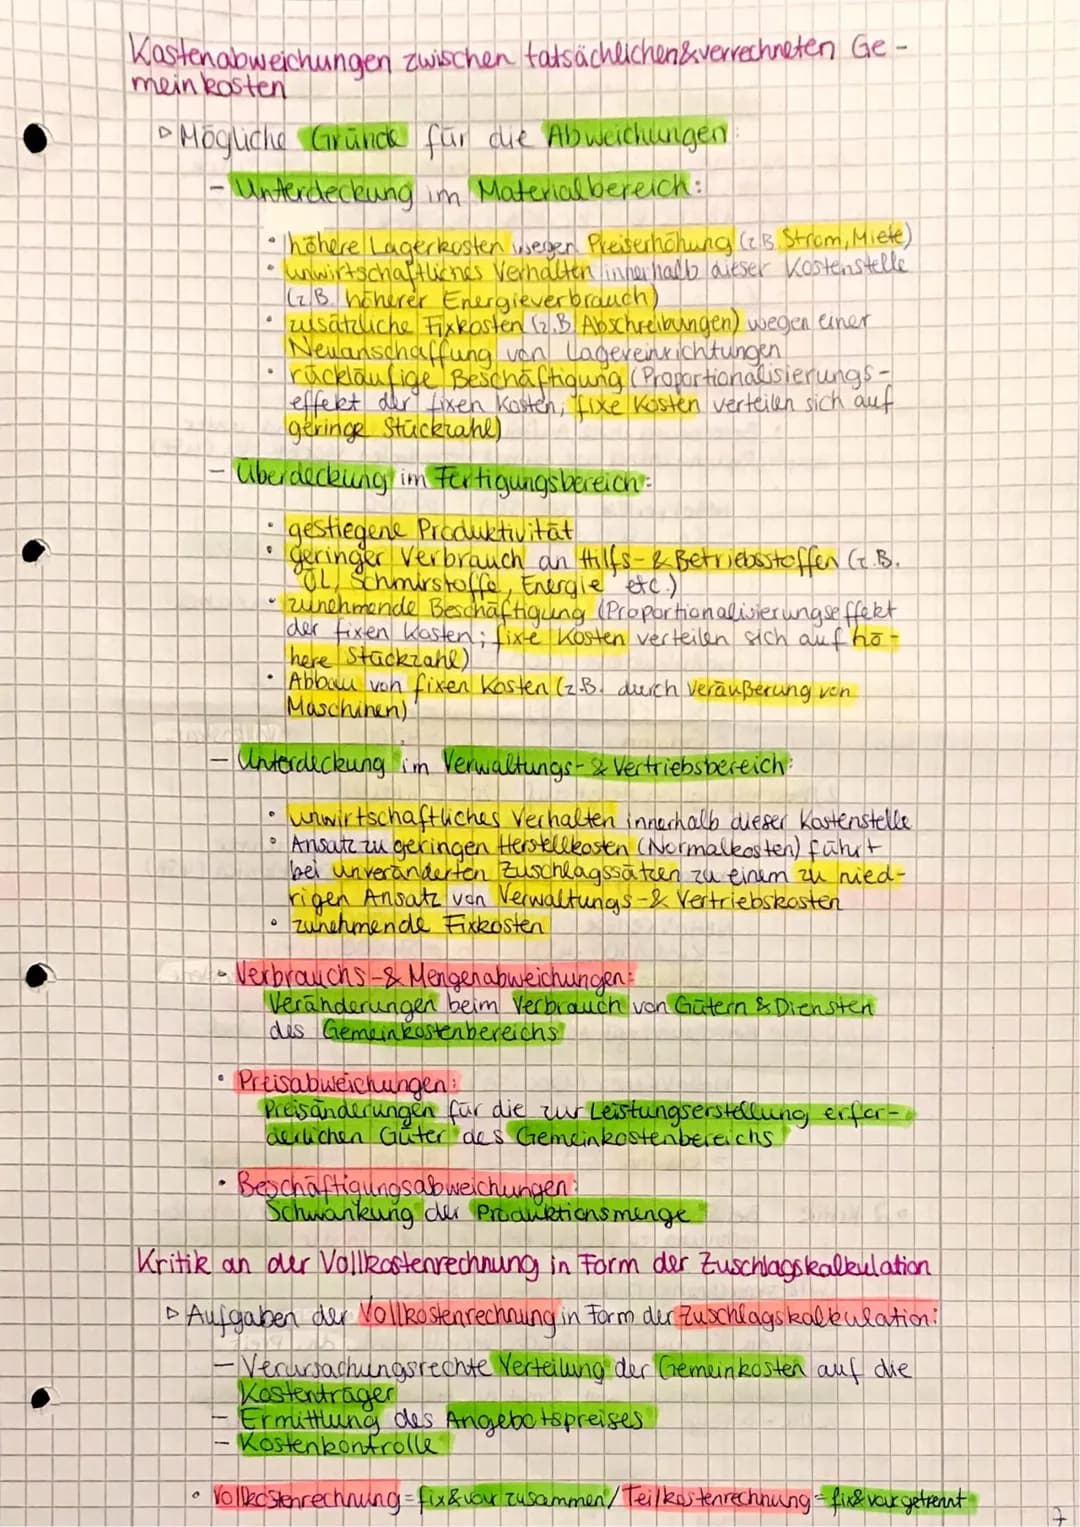 Kostenabweichungen zwischen tatsächlichen&verrechneten Ge-
meinkosten
▷ Mögliche Gründe für die Abweichungen:
- Unterdeckung im Materialbereich:
• höhere Lagerkosten wegen Preiserhöhung (z.B. Strom, Miete)
• unwirtschaftliches Verhalten innerhalb dieser Kostenstelle
(z.B. höherer Energieverbrauch)
• zusätzliche Fixkosten (z.B. Abschreibungen) wegen einer
Neuanschaffung von Lagereinrichtungen
• rückläufige Beschäftigung (Proportionalisierungs-
effekt der fixen Kosten, fixe Kosten verteilen sich auf
geringe Stückzahl)
- Überdeckung im Fertigungsbereich:
• gestiegene Produktivität
• geringer Verbrauch an Hilfs- & Betriebsstoffen (z.B.
ÖL, Schmirstoffe, Energie etc.)
• zunehmende Beschäftigung (Proportionalisierungseffekt
der fixen Kosten; fixe Kosten verteilen sich auf hö-
here Stückzahl)
• Abbau von fixen Kosten (z.B. durch Veräußerung von
Maschinen)
- Unterdeckung im Verwaltungs- & Vertriebsbereich:
• unwirtschaftliches Verhalten innerhalb dieser Kostenstelle
• Ansatz zu geringen Herstellkosten (Normalkosten) führt
bei unveränderten Zuschlagssätzen zu einem zu nied-
rigen Ansatz von Verwaltungs-& Vertriebskosten
• zunehmende Fixkosten
• Verbrauchs-& Mengenabweichungen:
Veränderungen beim Verbrauch von Gütern & Diensten
des Gemeinkostenbereichs
• Preisabweichungen:
Preisänderungen für die zur Leistungserstellung erfor-
derlichen Güter des Gemeinkostenbereichs
• Beschäftigungsabweichungen:
Schwankung der Produktionsmenge
Kritik an der Vollkostenrechnung in Form der Zuschlagskalkulation
▷ Aufgaben der Vollkostenrechnung in Form der Zuschlagskalkulation:
- Verursachungsrechte Verteilung der Gemeinkosten auf die
Kostenträger
- Ermittlung des Angebotspreises
- Kostenkontrolle
• Vollkostenrechnung = fix&var zusammen / Teilkostenrechnung = fix& var getrennt
7